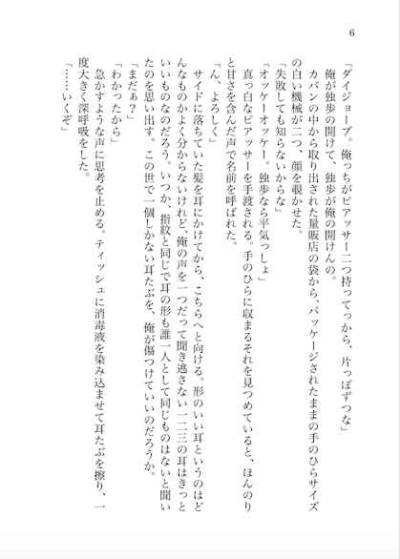 6
「ダイジョーブ。俺っちがピアッサー二つ持ってっから、片っぽずつな」
俺が独歩の開けて、独歩が俺の開けんの。
カバンの中から取り出された量販店の袋から、パッケージされたままの手のひらサイズ
の白い機械が二つ、顔を覗かせた。
「失敗しても知らないからな」
「オッケーオッケー。独歩なら平気っしょ」
真っ白なピアッサーを手渡される。手のひらに収まるそれを見つめていると、ほんのり
と甘さを含んだ声で名前を呼ばれた。
「ん、よろしく」
サイドに落ちていた髪を耳にかけてから、こちらへと向ける。形のいい耳というのはど
んなものかよく分からないけれど、俺の声を一つだって聞き逃さない一二三の耳はきっと
いいものなのだろう。いつか、指紋と同じで耳の形も誰一人として同じものはないと聞い
たのを思い出す。この世で一個しかない耳たぶを、俺が傷つけていいのだろうか。
「まだぁ?」
「わかったから」
急かすような声に思考を止める。ティッシュに消毒液を染み込ませて耳たぶを擦り、一
度大きく深呼吸をした。
「……いくぞ」